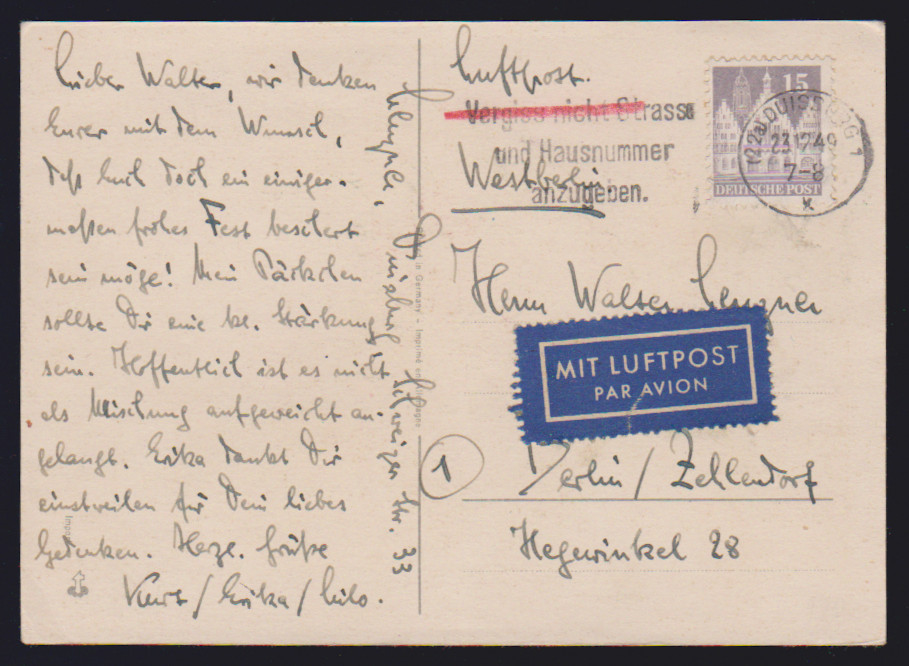 Lieber Walter, wir denken
Eurer mit dem Wunsch,
daß Euch doch ein einiger-
maßen frohes Fest beschert
sein möge! Mein Päckchen
sollte Dir eine kl. Stärkung
sein. Hoffentlich ist es nicht
als Mischung aufgeweicht an-
gelangt. Erika dankt Dir
einstweilen für Dein liebes
Gedenken. Herzl. Grüße
Kurt / Erika / Lilo.
Duisburg, Schweizer Str. 33
in Germany - Imprimé en
Luftpost.
Vergiss nicht Strasse
und Hausnummer
anzugeben.
Westberlin.
15
DEUTSCHE POST
(22a) DUISBURG 1
23.12.49
7-8
k
Herrn Walter
MIT LUFTPOST
PAR AVION
1
Berlin / Zehlendorf
Hegewinkel 28